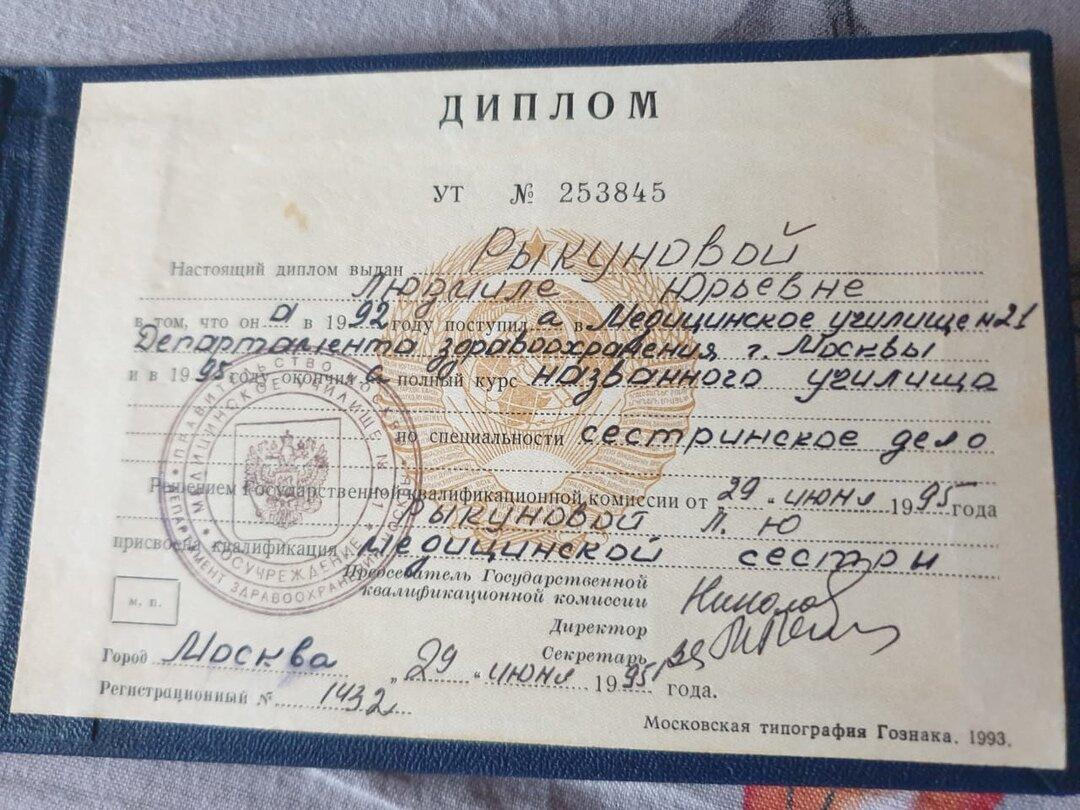 ДИПЛОМ
УТ № 253845
Настоящий диплом выдан Рыкуновой
Людмиле Юрьевне
в том, что он а в 1992 году поступил а в Медицинское училище №21
Департамента здравоохранения г. Москвы
и в 1995 году окончил а полный курс названного училища
по специальности сестринское дело
Решением Государственной квалификационной комиссии от 29 " июня 1995 года
Рыкуновой Л. Ю
присвоена квалификация медицинской сестры
Председатель Государственной
квалификационной комиссии
Директор
Секретарь
м. п.
Город Москва „ 29 " июня 1995 года.
Регистрационный № 1432
Московская типография Гознака. 1993.
МЕДИЦИНСКОЕ УЧИЛИЩЕ
ГОСУЧРЕЖДЕНИЕ
ДЕПАРТАМЕНТ ЗДРАВООХРАНЕНИЯ